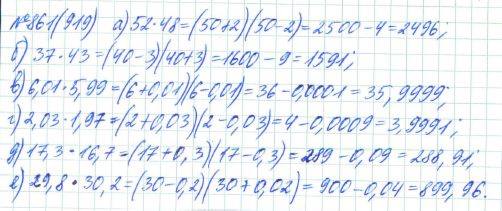 №861(919) а) 52·48=(50+2)(50-2)=2500-4=2496;
б) 37·43=(40-3)(40+3)=1600-9=1591;
в) 6,01·5,99=(6+0,01)(6-0,01)=36-0,0001=35,9999;
г) 2,03·1,97=(2+0,03)(2-0,03)=4-0,0009=3,9991;
д) 17,3·16,7=(17+0,3)(17-0,3)=289-0,09=288,91;
е) 29,8·30,2=(30-0,2)(30+0,02)=900-0,04=899,96.